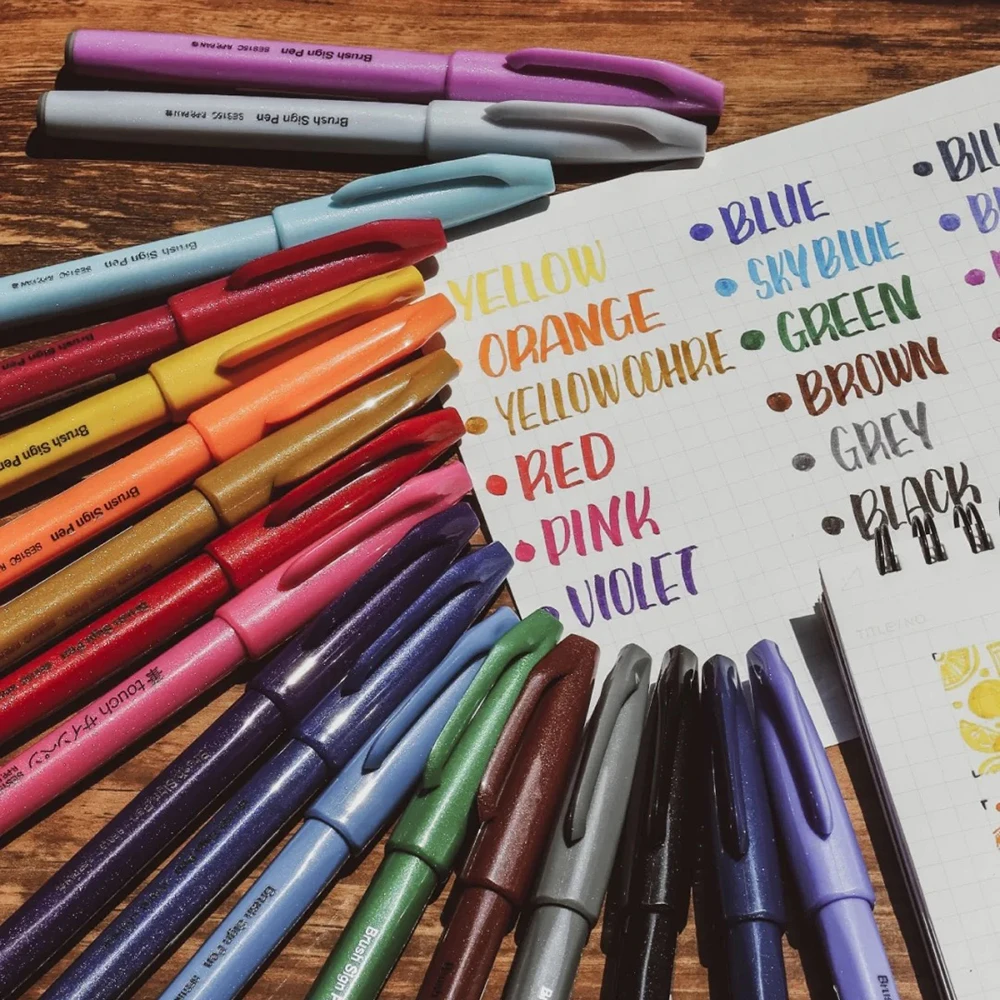 Brush Sign Pen SES15C
Brush Sign Pen SES15C
Brush Sign Pen SES15C
Brush Sign Pen
Brush Sign Pen
Brush Sign Pen SES15C
筆touchサインペン
Brush Sign Pen
Brush Sign
YELLOW
ORANGE
YELLOW OCHRE
RED
PINK
VIOLET
BLUE
SKY BLUE
GREEN
BROWN
GREY
BLACK
TITLE/NO